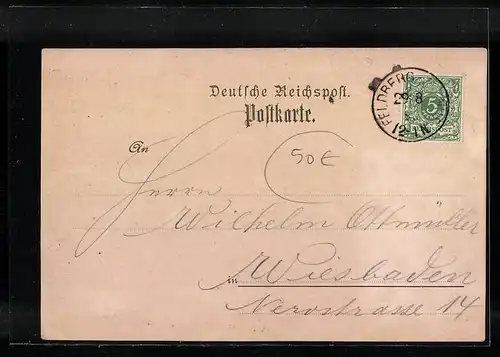 Deutsche Reichspost.
Postkarte.
FELDBERG
29 8
12-1N.
5
An
50 €
Herrn
Wilhelm Ottmüller
in Wiesbaden
Nerostrasse 14